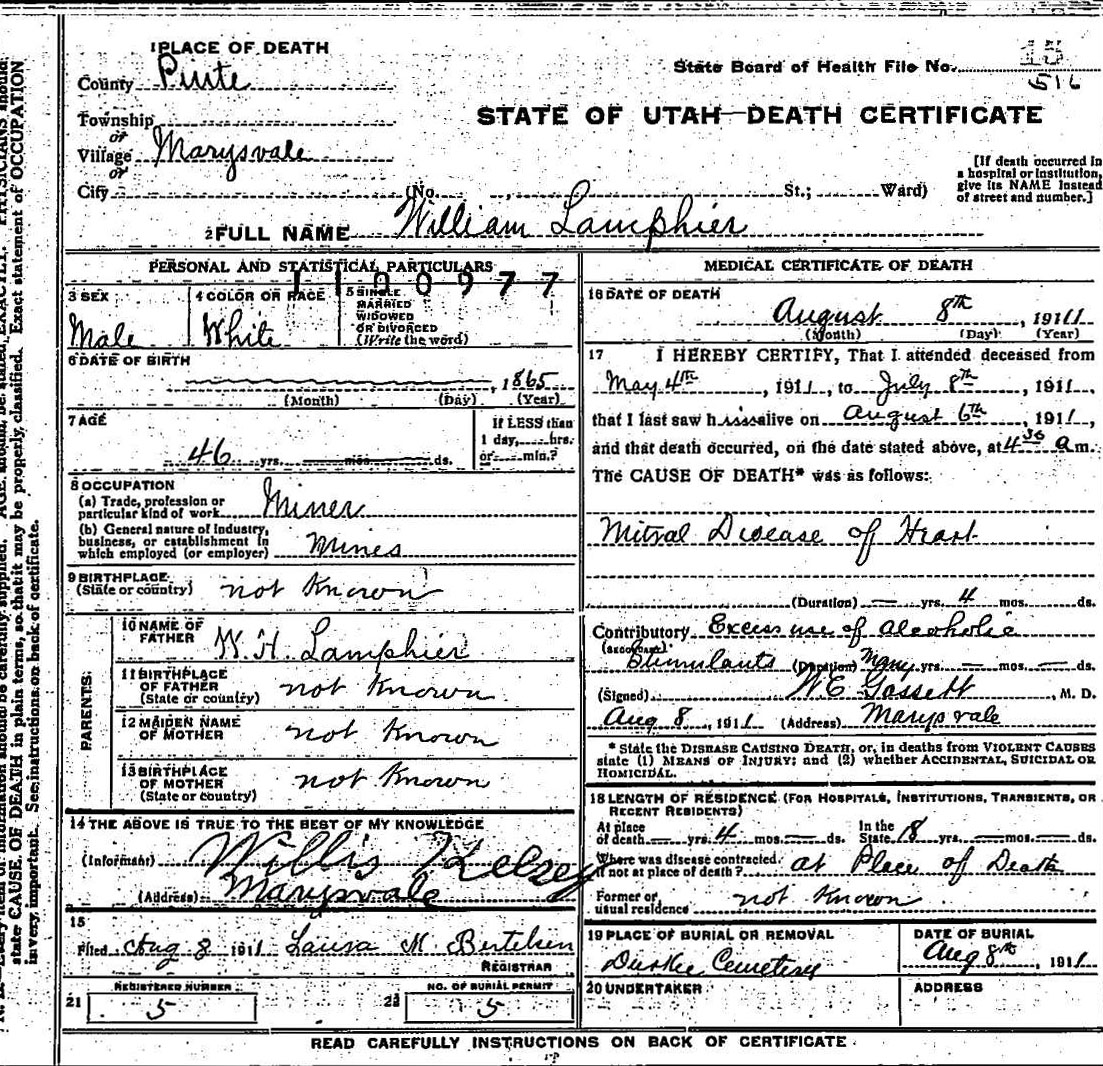 1 PLACE OF DEATH
County Piute
State Board of Health File No. 15
516
Township
or
Village Marysvale
or
City (No. , St.; Ward)
STATE OF UTAH—DEATH CERTIFICATE
[If death occurred in
a hospital or institution,
give its NAME instead
of street and number.]
2 FULL NAME William Lamphier
PERSONAL AND STATISTICAL PARTICULARS
1100977
3 SEX
Male
4 COLOR OR RACE
White
5 SINGLE
MARRIED
WIDOWED
OR DIVORCED
(Write the word)
6 DATE OF BIRTH
, 1865
(Month) (Day) (Year)
7 AGE
46 yrs. mos. ds.
If LESS than
1 day, hrs.
or min.?
8 OCCUPATION
(a) Trade, profession or
particular kind of work Miner
(b) General nature of industry,
business, or establishment in
which employed (or employer) Mines
9 BIRTHPLACE
(State or country) not Known
PARENTS
10 NAME OF
FATHER W. H. Lamphier
11 BIRTHPLACE
OF FATHER
(State or country) not Known
12 MAIDEN NAME
OF MOTHER not Known
13 BIRTHPLACE
OF MOTHER
(State or country) not Known
14 THE ABOVE IS TRUE TO THE BEST OF MY KNOWLEDGE
(Informant) Willis Kelsey
(Address) Marysvale
15
Filed Aug 8 1911 Laura M Bertelsen
REGISTRAR
21 REGISTERED NUMBER
5
22 NO. OF BURIAL PERMIT
5
MEDICAL CERTIFICATE OF DEATH
16 DATE OF DEATH
August 8th, 1911
(Month) (Day) (Year)
17 I HEREBY CERTIFY, That I attended deceased from
May 4th, 1911, to July 8th, 1911,
that I last saw him alive on August 6th, 1911,
and that death occurred, on the date stated above, at 4 30 a m.
The CAUSE OF DEATH* was as follows:
Mitral Disease of Heart
(Duration) — yrs. 4 mos. ds.
Contributory Excess use of Alcoholic
(SECONDARY)
Stimulants (Duration) Many yrs. — mos. — ds.
(Signed) W C Gassett, M. D.
Aug 8, 1911 (Address) Marysvale
* State the DISEASE CAUSING DEATH, or, in deaths from VIOLENT CAUSES
state (1) MEANS OF INJURY; and (2) whether ACCIDENTAL, SUICIDAL OR
HOMICIDAL.
18 LENGTH OF RESIDENCE (FOR HOSPITALS, INSTITUTIONS, TRANSIENTS, OR
RECENT RESIDENTS)
At place
of death — yrs. 4 mos. — ds. In the
State 18 yrs. — mos. — ds.
Where was disease contracted,
if not at place of death? at Place of Death
Former or
usual residence not Known
19 PLACE OF BURIAL OR REMOVAL
Durkee Cemetery
DATE OF BURIAL
Aug 8th, 1911
20 UNDERTAKER
ADDRESS
READ CAREFULLY INSTRUCTIONS ON BACK OF CERTIFICATE
state CAUSE OF DEATH in plain terms, so that it may be properly classified. Exact statement of OCCUPATION
is very important. See instructions on back of certificate.